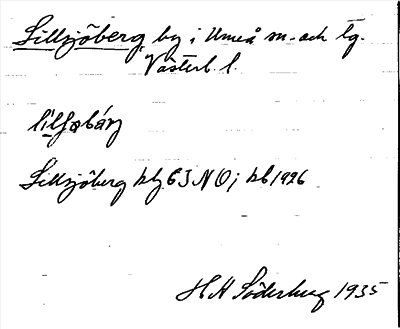 Sillsjöberg by i Umeå sn. och tg.
Västerb. l.
Sillsjöberg 63 NO; kb 1926
H H Söderberg 1935